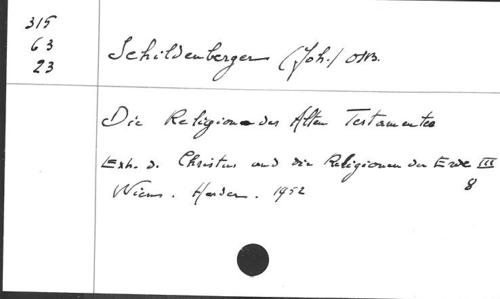 315
63
23
Schildenberger (Joh.) OSB.
Die Religion des Alten Testamentes
Exh. d. Christus und die Religionen der Erde III
8
Wien. Herder. 1952